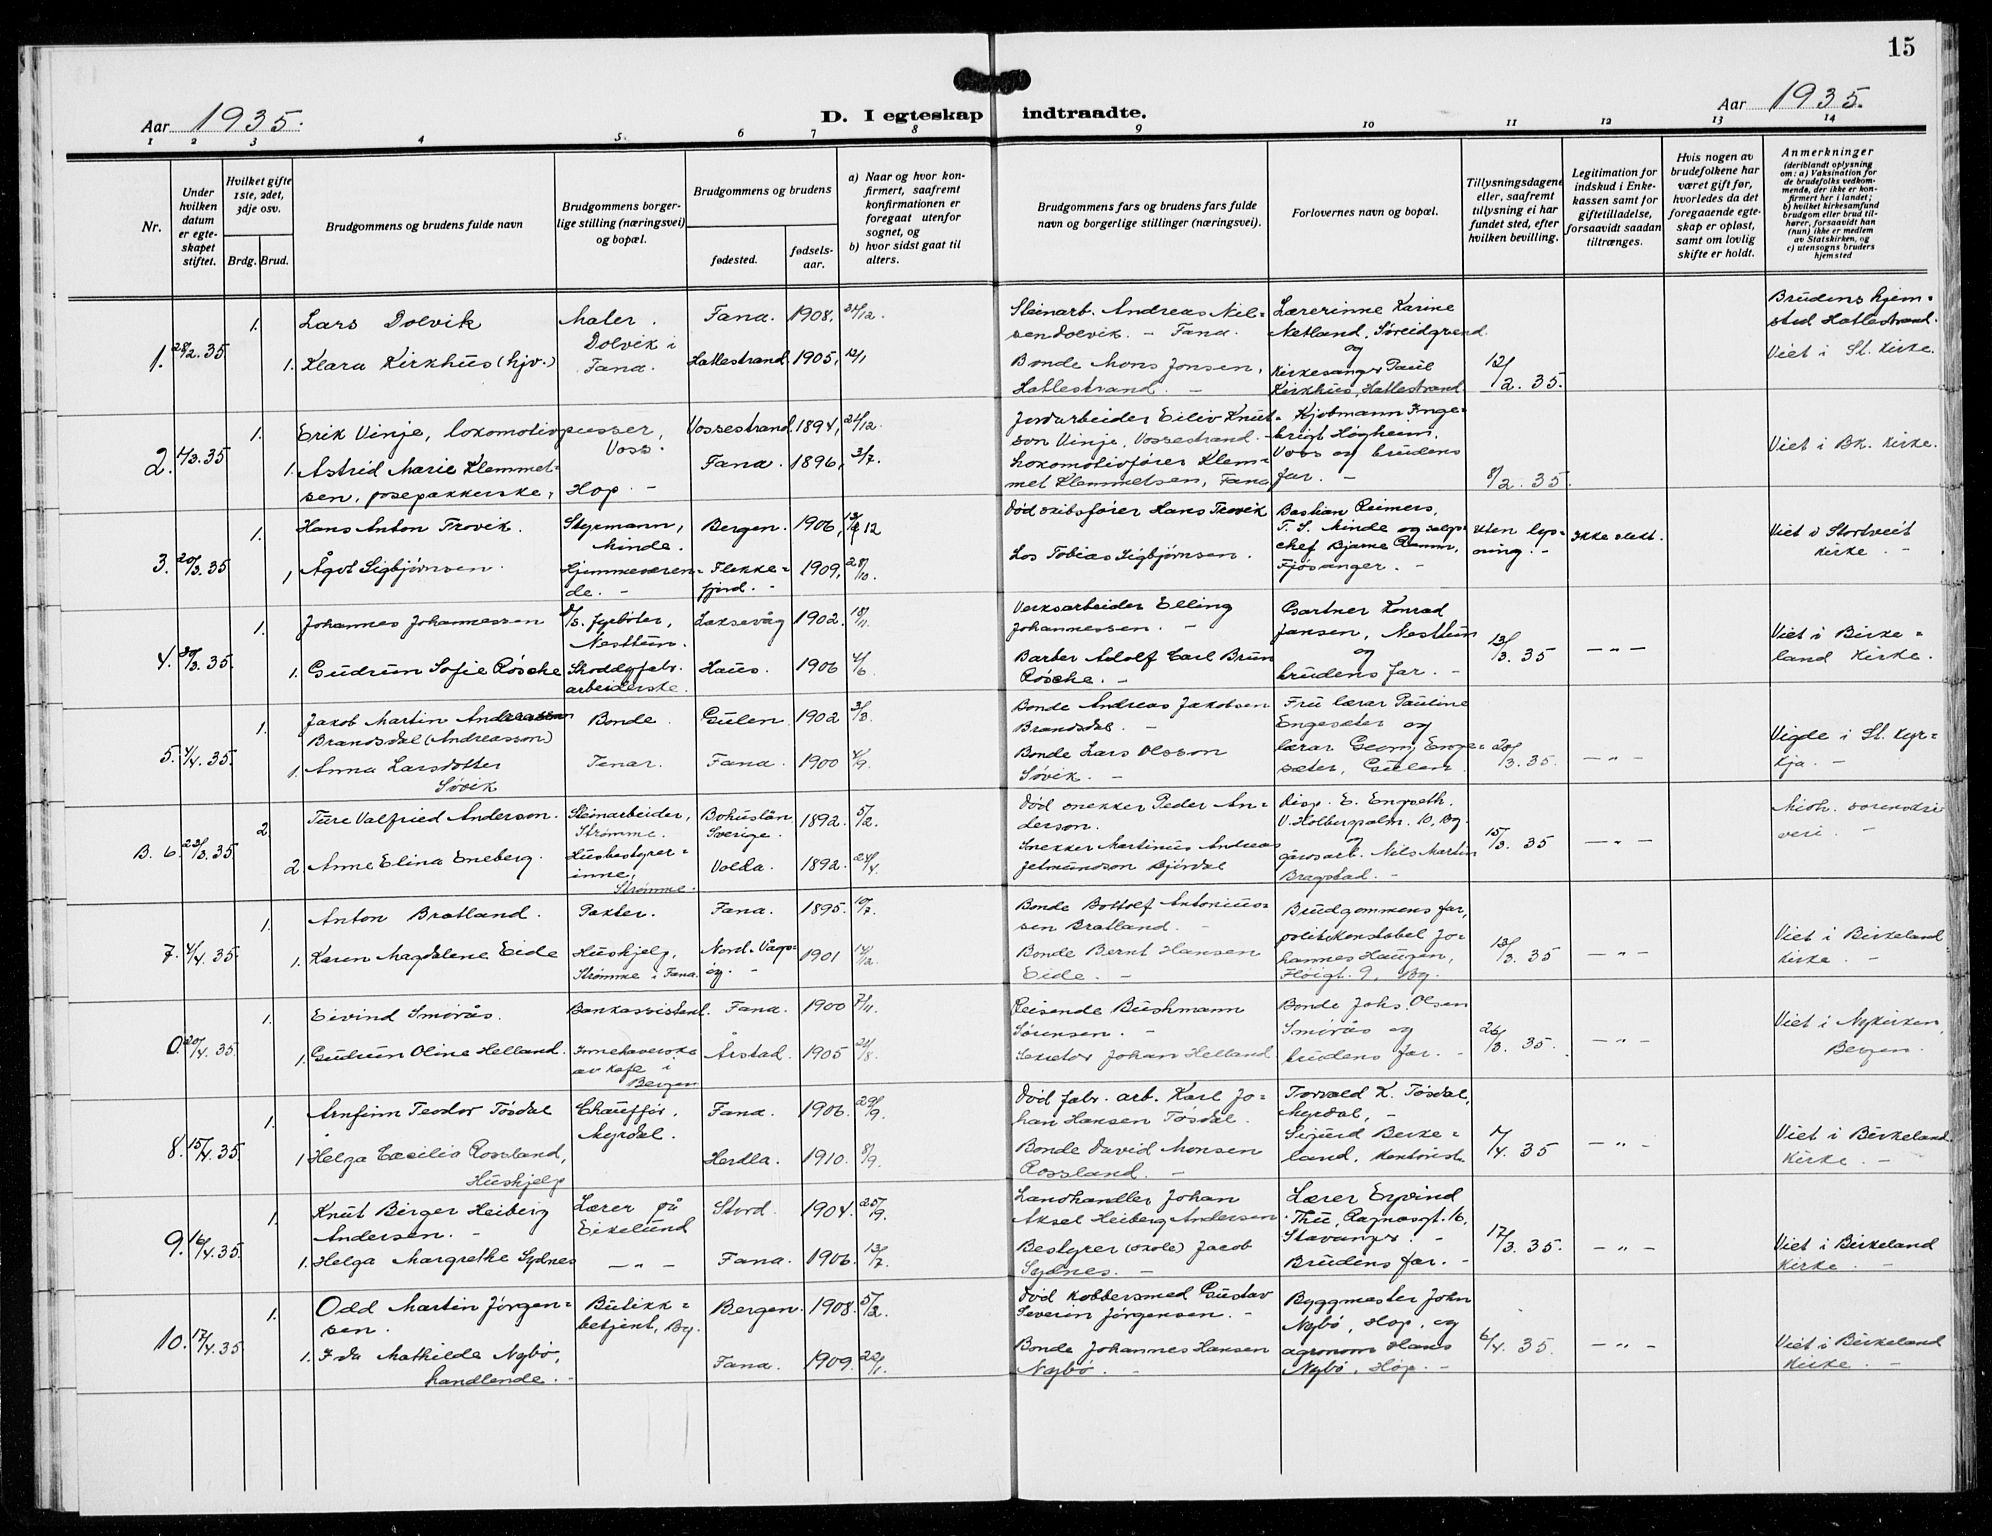 15
Aar 1935.
D. I egteskap indtraadte.
Aar 1935.
1 2 3 4 5. 6 7 8 9 10 11 12 13 14
Nr.
Under hvilken datum er egteskapet stiftet.
Hvilket gifte 1ste, 2det, 3dje osv.
Brdg. Brud.
Brudgommens og brudens fulde navn
Brudgommens borgerlige stilling (næringsvei) og bopæl.
Brudgommens og brudens
fødested.
fødselsaar.
a) Naar og hvor konfirmert, saafremt konfirmationen er foregaat utenfor sognet, og
b) hvor sidst gaat til alters.
Brudgommens fars og brudens fars fulde navn og borgerlige stillinger (næringsvei).
Forlovernes navn og bopæl.
Tillysningsdagene eller, saafremt tillysning ei har fundet sted, efter hvilken bevilling.
Legitimation for indskud i Enkekassen samt for giftetilladelse, forsaavidt saadan tiltrænges.
Hvis nogen av brudefolkene har været gift før, hvorledes da det foregaaende egteskap er opløst, samt om lovlig skifte er holdt.
Anmerkninger
(deriblandt oplysning om: a) Vaksination for de brudefolks vedkommende, der ikke er konfirmert her i landet; b) hvilket kirkesamfund brudgom eller brud tilhører, forsaavidt han (hun) ikke er medlem av Statskirken, og c) utensogns bruders hjemsted
1. 28/2.35 1. Lars Dolvik Maler. Dolvik i Fana. Fana. 1908, /12. Steinarb. Andreas Nilsen Dolvik. - Fana. Lærerinne Karine Netland, Søreidgrend og Brudens hjemsted Hatlestrand.
1. Klara Kirkhus (hjv.) Hatlestrand 1905, 12/1 Bonde Mons Jonsen, Hatlestrand. - Kirkesanger Paul Kirkhus, Hatlestrand 12/2. 35. Viet i St. Kirke.
2. /3.35 1. Erik Vinje, lokomotivpusser, Voss. Vossestrand. 1894, 21/12. Jordarbeider Eiliv Knutson Vinje, Vossestrand. - Kjøbmann Ingebrigt Høgheim, Voss og brudens far. -
1. Astrid Marie Klemmetsen, posepakkerske, Hop. - Fana. 1896, 3/7. Lokomotivfører Klemmet Klemmetsen, Fana 8/2. 35. Viet i Bk. Kirke.
3. 20/3.35 1. Hans Anton Trovik. Styrmann, Minde. Bergen. 1906, Død skibsfører Hans Trovik Bastian Reimers, T. S. Minde og Uten lysning. - Ikke slekt. Viet i Storetveit kirke. -
1, Ågot Sigbjørnsen. Hjemmeværende. - Flekkefjord. - 1909, 28/10. Los Tobias Sigbjørnsen. chef Bjarne Fjøsanger. -
4. 30/3.35 1. Johannes Johannessen D/S. fyrbøter, Nesttun. Laksevåg 1902. 18/11. Verksarbeider Elling Johannessen. - Gartner Konrad Jansen, Nesttun og
1. Gudrun Sofie Røscke Skotøyfabr. arbeiderske. Haus. 1906 4/6. Barber Adolf Carl Brun Røscke. - brudens far. - 13/3. 35 - " - Viet i Birkeland Kirke.
5. 4/4.35. 1. Jakob Martin Andreassen Brandsdal (Andreasson) Bonde. Gulen. 1902 3/8. Bonde Andreas Jakobsen Brandsdal. - Fru lærar Pauline Engesæter og
1. Anna Larsdotter Søvik Tenar. Fana. 1900 4/9. Bonde Lars Olsson Søvik. - lærar Georg Engesæter, Gulen. 20/3. 35. - " - Vigde i St. Kyrkja. -
B. 6. 23/3.35 2 Ture Valfried Anderson. Steinarbeider, Strømme. Bohuslän Sverige. 1892. 5/2. Død snekker Peder Anderson. Disp. E. Engseth. V. Holbergsalm. 10, Bg. og
2. Anne Elina Eneberg. Husbestyrerinne, Strømme. Volda. 1892. 24/4. Snekker Martinus Andreas Jetmundson Bjørdal gårdsarb. Nils Martin Bragstad. - 15/3. 35 - " -
7. 4/4.35. 1. Anton Bratland. Pakter. Fana. 1895. 10/7. Bonde Bottolf Antoniussen Bratland. - Brudgommens far,
1. Karen Magdalene Eide Hushjelp, Strømme i Fana. Nord-Vågsøy. - 1901 14/12. Bonde Bernt Hansen Eide. - politikonstabel Johannes Haugen, Fløigt. 9, Bg. 13/3. 35 - " - Viet i Birkeland kirke. -
0. 20/4.35. 1. Eivind Smørås. Bankassistent. Fana. 1900 7/11. Reisende Buchmann Sørensen. - Bonde Johs. Olsen Smørås og
1. Gudrun Oline Helland. Innehaverske av kafe i Bergen Årstad. 1905 21/8. Sekretær Johan Helland. brudens far. - 26/3. 35. - " - Viet i Nykirken, Bergen.
8. 15/4.35. 1. Arnfinn Teodor Tøsdal Chauffør, Myrdal. Fana. 1906. 29/9. Død fabr. arb. Karl Johan Hansen Tøsdal. Torvald K. Tøsdal, Myrdal, -
1 Helga Cæsilia Rossland, Hushjelp Herdla. 1910. 8/9. Bonde David Monsen Rossland. - Sigurd Birkeland, kontorist. 7/4. 35 - " - Viet i Birkeland Kirke. -
9. 16/4.35. 1. Knut Birger Heiberg Andersen. - Lærer på Eikelund Stord. 1904. 25/9. Landhandler Johan Aksel Heiberg Andersen Lærer Eyvind Thu, Ragnasgt. 16, Stavanger. -
1. Helga Margrethe Sydnes - " - Fana. 1906. 13/7. Bestyrer (skole) Jacob Sydnes. - Brudens far. - 17/3. 35. - " - Viet i Birkeland Kirke. -
10. 17/4.35. 1. Odd Martin Jörgensen. Butikkbetjent, Bg. Bergen. 1908. 5/2. Død kobbersmed Gustav Severin Jørgensen. - Byggmester John Nybø, Hop, og
1. Ida Mathilde Nybø, handlende. - Fana. 1909. 22/1. Bonde Johannes Hansen Nybø. - agronom Hans Nybø, Hop. - 6/4. 35. - " - Viet i Birkeland Kirke. -